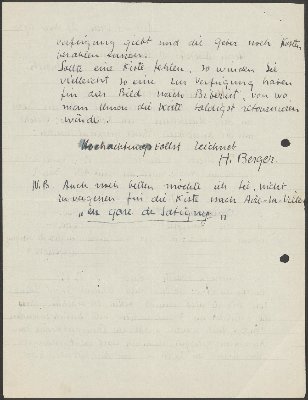 verfügung giebt und die geben noch Kosten
bezahlen lassen.
Sollte eine Kiste fehlen, so würden Sie
vielleicht so eine zur Verfügung haben
für das Bild nach , von wo
man Ihnen die Kiste sofort retournieren
würde.
Hochachtungsvollst zeichnet
H. Berger
N.B. Auch noch bitten möchte ich Sie, nicht
zu vergessen für die Kiste nach
"en gare de Satigny"